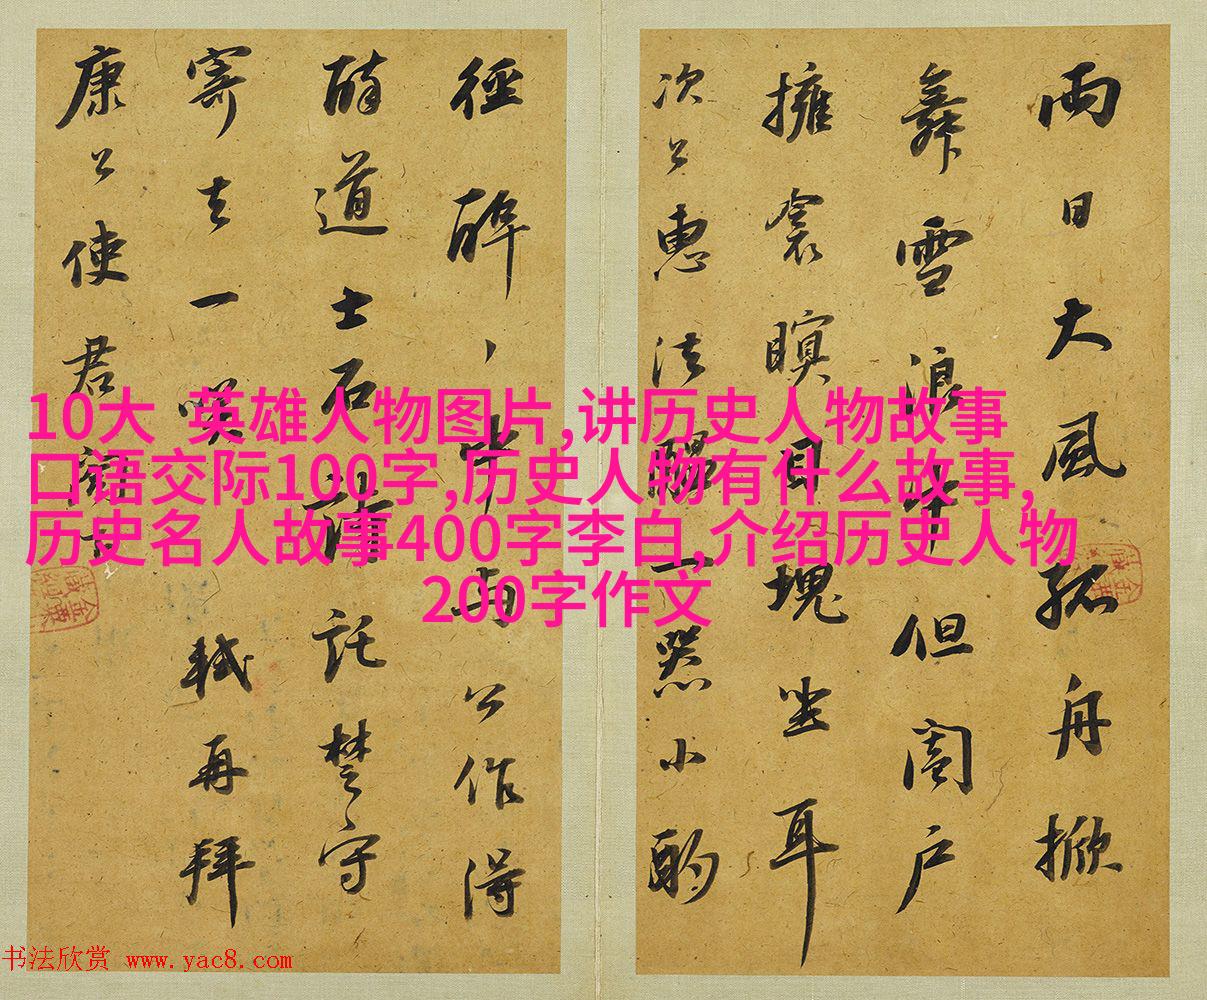 雨日大風孤舟掀
舞雪浪中但闔戶
擁衾瞑目塊坐耳
次公惠法醞一器小酌
徑醉、中與公作得
醉道士石詩託楚守
寄去一咲軾再拜
康公使君
10大 英雄人物图片,讲历史人物故事
口语交际100字,历史人物有什么故事,
历史名人故事400字李白,介绍历史人物
200字作文
书法欣赏 www.yac8.com